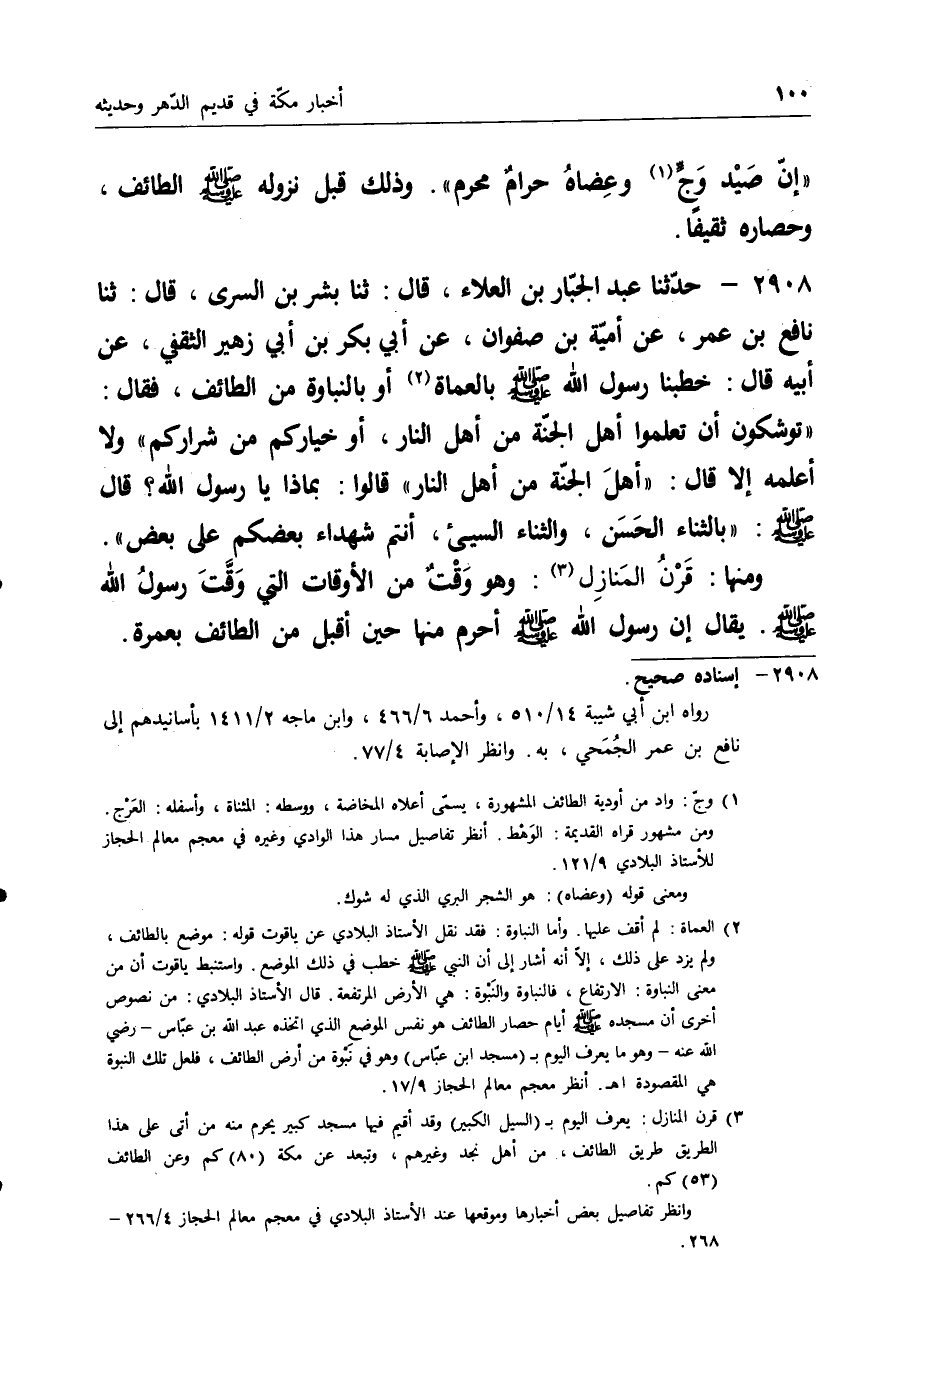 ١٠٠ أخبار مكّة في قديم الدّهر وحديثه
«إنّ صَيْد وَجٍّ(١) وعِضاهُ حرامٌ محرم». وذلك قبل نزوله ﷺ الطائف ،
وحصاره ثقيفًا.
٢٩٠٨ – حدّثنا عبد الجبّار بن العلاء ، قال : ثنا بشر بن السرى ، قال : ثنا
نافع بن عمر ، عن أميّة بن صفوان ، عن أبي بكر بن أبي زهير الثقفي ، عن
أبيه قال : خطبنا رسول الله ﷺ بالعماة(٢) أو بالنباوة من الطائف ، فقال :
«توشكون أن تعلموا أهل الجنّة من أهل النار ، أو خياركم من شراركم» ولا
أعلمه إلا قال : «أهلَ الجنّة من أهل النار» قالوا : بماذا يا رسول الله؟ قال
ﷺ : «بالثناء الحَسَن ، والثناء السيئ ، أنتم شهداء بعضكم على بعض».
ومنها : قَرْنُ المَنازِل(٣) : وهو وَقْتٌ من الأوقات التي وَقَّتَ رسولُ الله
ﷺ. يقال إن رسول الله ﷺ أحرم منها حين أقبل من الطائف بعمرة.
٢٩٠٨ – إسناده صحيح.
رواه ابن أبي شيبة ٥١٠/١٤ ، وأحمد ٤٦٦/٦ ، وابن ماجه ١٤١١/٢ بأسانيدهم إلى
نافع بن عمر الجُمَحي ، به. وانظر الإصابة ٧٧/٤.
١) وجّ : واد من أودية الطائف المشهورة ، يسمّى أعلاه المخاضة ، ووسطه : المثناة ، وأسفله : العَرْج.
ومن مشهور قراه القديمة : الوَهْط. أنظر تفاصيل مسار هذا الوادي وغيره في معجم معالم الحجاز
للأستاذ البلادي ١٢١/٩.
ومعنى قوله (وعضاه) : هو الشجر البري الذي له شوك.
٢) العماة : لم أقف عليها. وأما النباوة : فقد نقل الأستاذ البلادي عن ياقوت قوله : موضع بالطائف ،
ولم يزد على ذلك ، إلاّ أنه أشار إلى أن النبي ﷺ خطب في ذلك الموضع. واستنبط ياقوت أن من
معنى النباوة : الارتفاع ، فالنباوة والنَبْوة : هي الأرض المرتفعة. قال الأستاذ البلادي : من نصوص
أخرى أن مسجده ﷺ أيام حصار الطائف هو نفس الموضع الذي اتخذه عبد الله بن عبّاس – رضي
الله عنه – وهو ما يعرف اليوم بـ (مسجد ابن عبّاس) وهو في نَبْوة من أرض الطائف ، فلعل تلك النبوة
هي المقصودة اهـ. أنظر معجم معالم الحجاز ١٧/٩.
٣) قرن المنازل : يعرف اليوم بـ (السيل الكبير) وقد أقيم فيها مسجد كبير يحرم منه من أتى على هذا
الطريق طريق الطائف ، من أهل نجد وغيرهم ، وتبعد عن مكة (٨٠) كم وعن الطائف
(٥٣) كم.
وانظر تفاصيل بعض أخبارها وموقعها عند الأستاذ البلادي في معجم معالم الحجاز ٢٦٦/٤ –
٢٦٨.